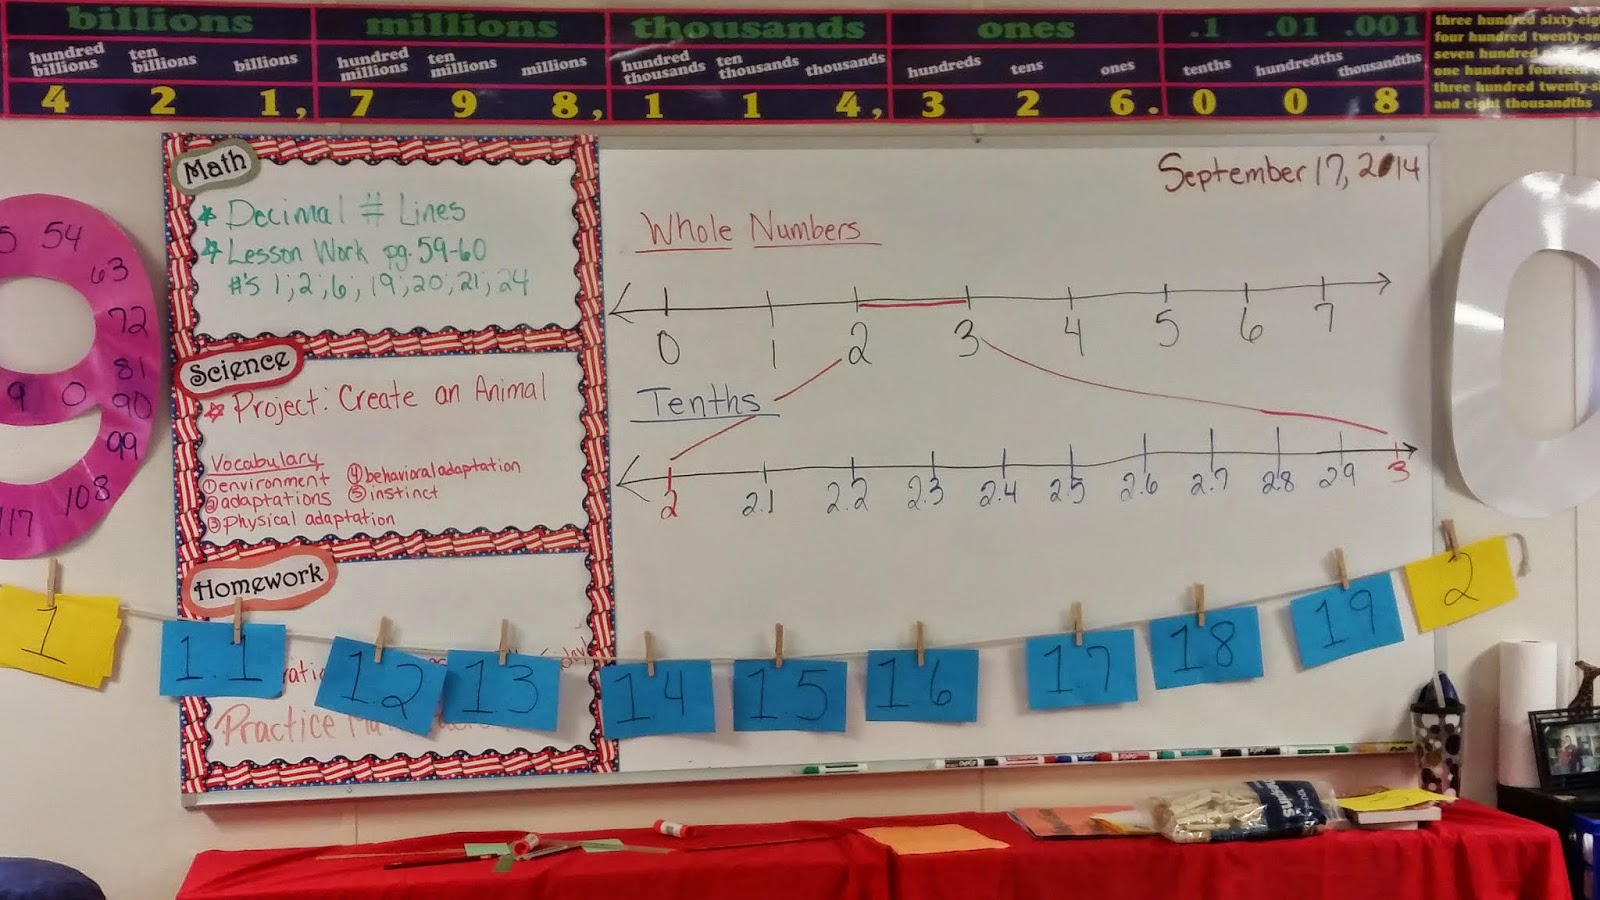 billions millions thousands ones .1 .01 .001
hundred billions ten billions billions hundred millions ten millions millions hundred thousands ten thousands thousands hundreds tens ones tenths hundredths thousandths
4 2 1, 7 9 8, 1 1 4, 3 2 6. 0 0 8
three hundred sixty-eig
four hundred twenty-on
seven hundred
one hundred fourteen
three hundred twenty-si
and eight thousandths
Math
Decimal # Lines
Lesson Work pg. 59-60
#'s 1; 2; 6; 19; 20; 21; 24
Science
Project: Create an Animal
Vocabulary
① environment
② adaptations
③ Physical adaptation
④ behavioral adaptation
⑤ instinct
Homework
Practice
September 17, 2014
Whole Numbers
0 1 2 3 4 5 6 7
Tenths
2 2.1 2.2 2.3 2.4 2.5 2.6 2.7 2.8 2.9 3
54
63
72
81
9 0 90
99
108
117
1 1.1 1.2 1.3 1.4 1.5 1.6 1.7 1.8 1.9 2